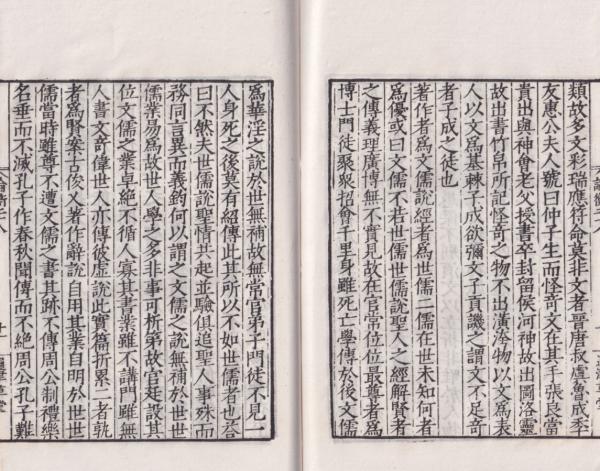 類故多文彩瑞應符命莫非文者晉唐叔虞魯成季
友惠公夫人號曰仲子生而怪奇文在其手張良當
貴出與神會老父授書卒封留侯河神故出圖洛靈
故出書竹帛所記怪奇之物不出潢洿物以文爲表
人以文爲基棘子成欲彌文子貢譏之謂文不足奇
者子成之徒也
著作者爲文儒說經者爲世儒二儒在世未知何者
爲優或曰文儒不若世儒世儒說聖人之經解賢者
之傳義理廣博無不實見故在官常位位最尊者爲
博士門徒聚衆招會千里身雖死亡學傳於後文儒
爲華淫之說於世無補故無常官弟子門徒不見一
人身死之後莫有紹傳此其所以不如世儒者也荅
曰不然夫世儒說聖情共起並驗俱追聖人事殊而
務同言異而義鈞何以謂之文儒之說無補於世世
儒業易爲故世人學之多非事可析第故官廷設其
位文儒之業卓絕不循人寡其書業雖不講門雖無
人書文奇偉世人亦傳彼虛說此實篇折累二者孰
者爲賢案古俊乂著作辭說自用其業自明於世世
儒當時雖尊不遭文儒之書其跡不傳周公制禮樂
名垂而不滅孔子作春秋聞傳而不絕周公孔子難